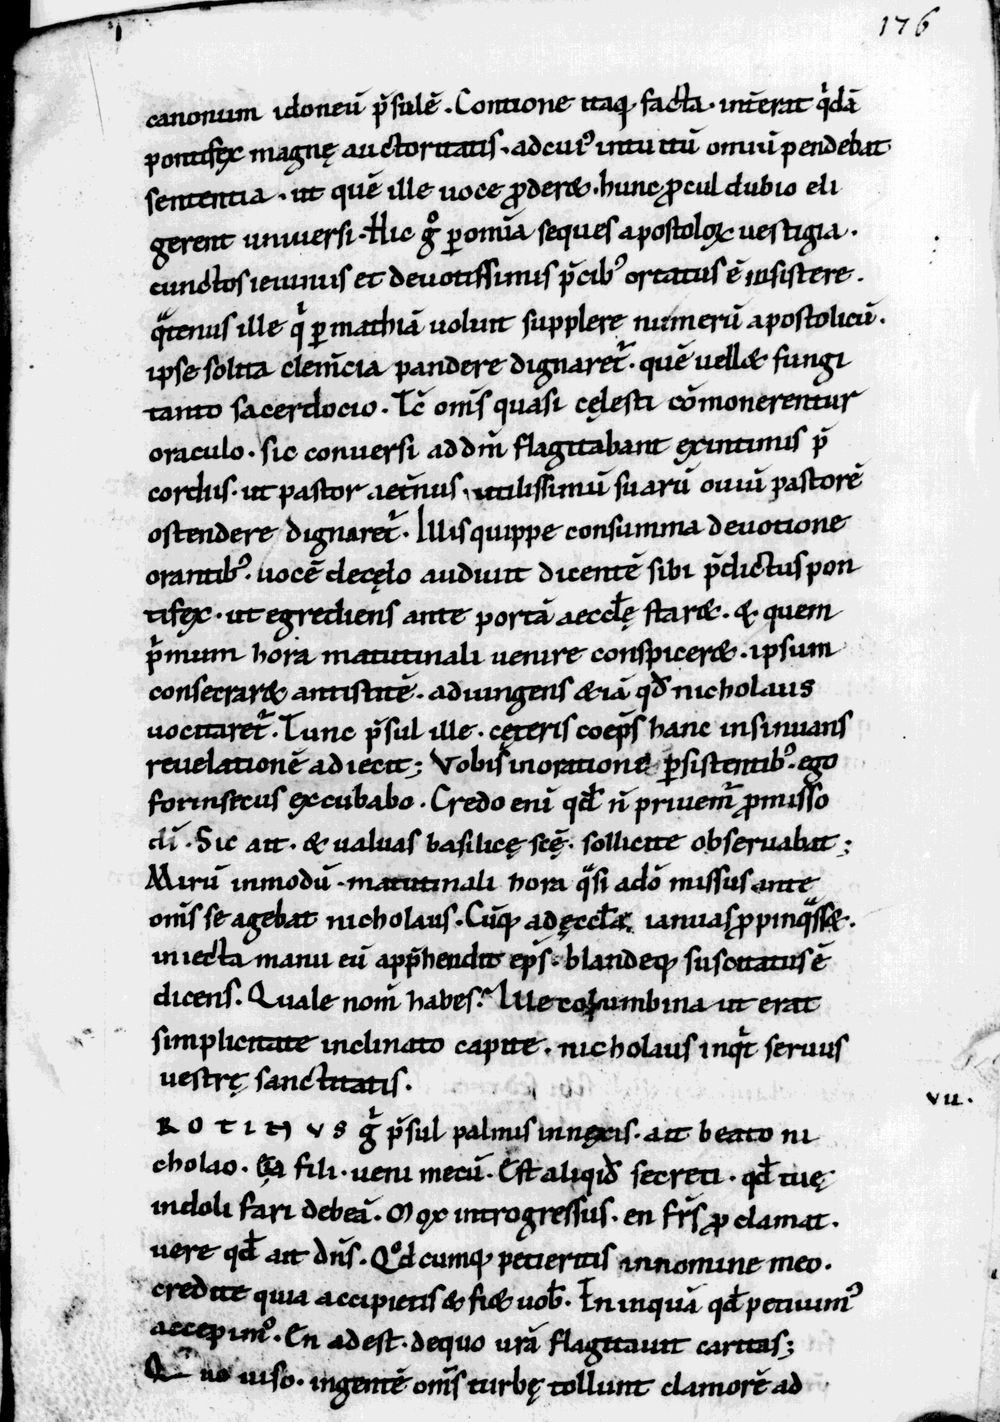 176
canonum idoneū p̄sulē. Contione itaq; facta. intererat q̇dā
pontifex magnę auctoritatis. ad cui᾽ intuitū omniū pendebat
sententia. ut quē ille voce ꝓderet. hunc ꝓcul dubio eli
gerent universi. Hic g̊ ꝑ om̄ia seques apostoloꝝ vestigia.
cunctos ieiuniis et devotissimis p̄cib᾽ ortatus ē insistere.
q̈tenus ille q̇ ꝑ mathiā voluit supplere numerū apostolicū.
ipse solita clem̄cia pandere dignaret᷑. quē vellet fungi
tanto sacerdocio. Tc̄ om̄s quasi cęlesti cōmonerentur
oraculo. sic conversi ad dn̄m flagitabant ex intimis p̄
cordiis. ut pastor aet̄nus. utilissimū suarū oviū pastorē
ostendere dignaret᷑. Illis quippe cum summa devotione
orantib᾽. vocē de cęlo audivit dicentē sibi p̄dictus pon
tifex. ut egrediens ante portā aeccłę staret. & quem
ṗmum hora matutinali venire conspiceret. ipsum
consecraret antistitē. adiungens &iā qđ nicholaus
vocitaret᷑. Tunc p̄sul ille. cęteris coep̄s hanc insinuans
revelationē adiecit; Vobis in oratione ꝑsistentib᾽. ego
forinsecus excubabo. Credo eni̅ qđ n̄ privem᷑ ꝓmisso
di̅. Sic ait. & valvas basilicę scę̄. sollicite observabat;
Mirū in modū. matutinali hora q̈si a dō missus ante
om̄s se agebat nicholaus. Cūq; ad ęccłę ianuas ꝓpinq̈sset.
iniecta manu eū app̄hendit ep̄s. blandeq; suscitatus ē
dicens. Quale nom̄ habes? Ille columbina ut erat
simplicitate inclinato capite. nicholaus inq̇t servus
vestrę sanctitatis.
VII.
ROTIHUS g̊ p̄sul palmis innexis. ait beato ni
cholao. Ea fili. veni mecū. Est aliqid̄ secreti. qđ tuę
indoli fari debeā. Mox introgressus. en fr̄s ꝓclamat.
vere qđ ait dn̄s. Qodcumq; petieritis in nomine meo.
credite quia accipietis & fiet vob̄. En inquā qđ petivim᾽
accepim᾽. En adest. de quo vr̄ā flagitavit caritas;
Quo viso. ingentē om̄s turbę tollunt clamorē ad